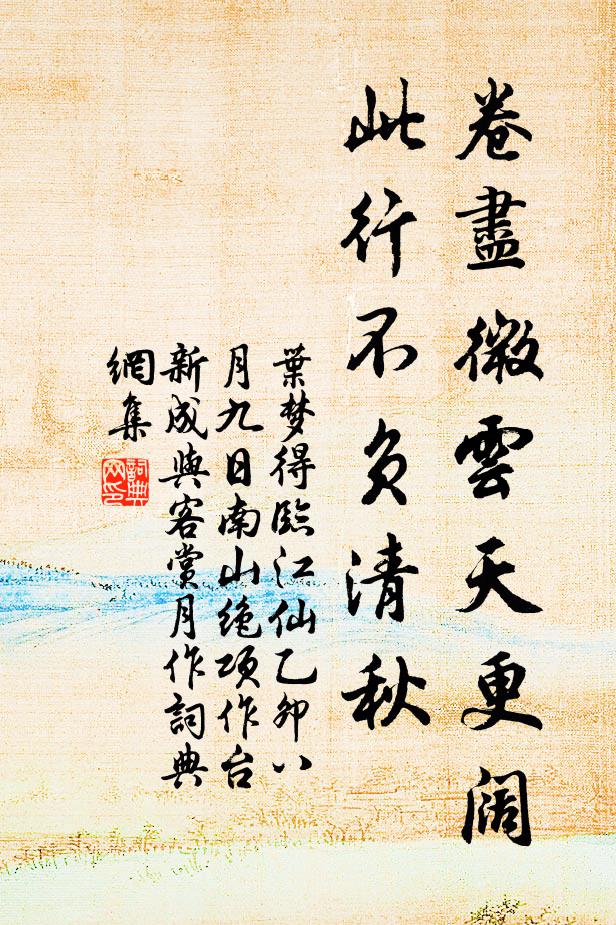 卷盡微雲天更阔
此行不負清秋
葉梦得臨江仙乙卯八
月九日南山绝项作台
新成與客賞月作詞典
網集
詞典网印